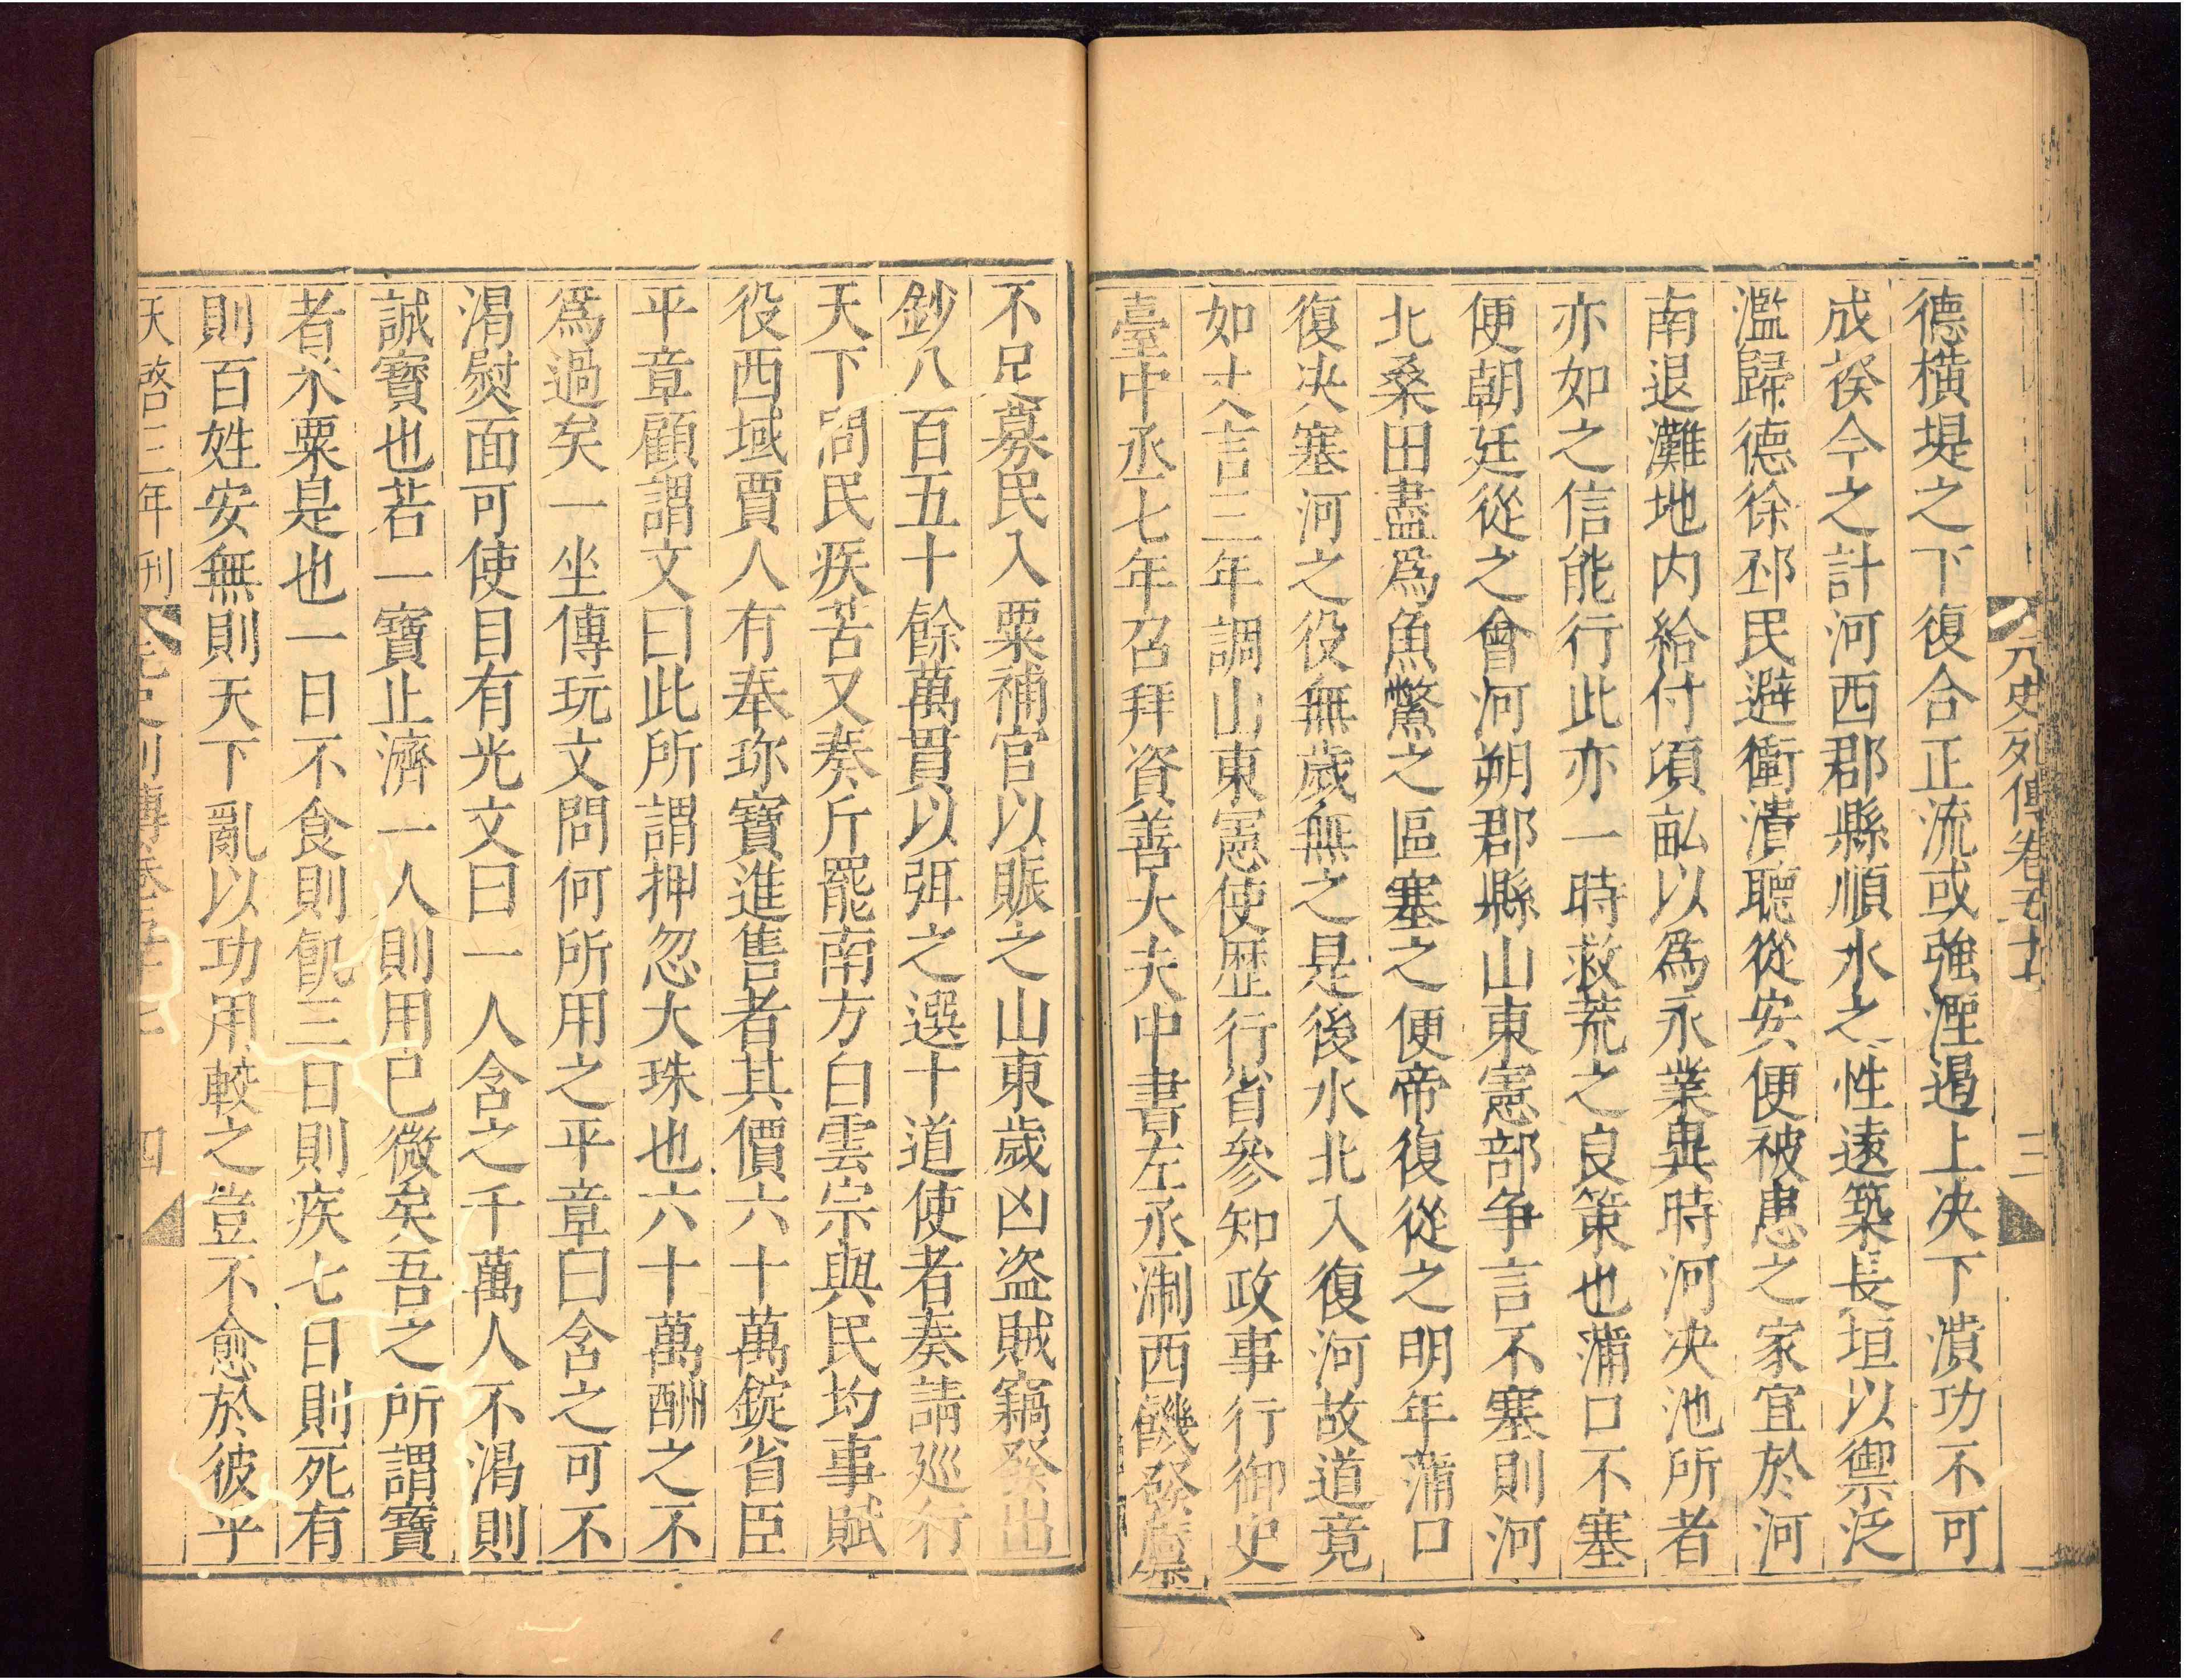 元史列傳卷五十七 三
德橫堤之下復合正流或強湮遏上决下潰功不可
成揆今之計河西郡縣順水之性遠築長垣以禦泛
濫歸德徐邳民避衝潰聽從安便被患之家宜於河
南退灘地内給付頃畝以為永業異時河决池所者
亦如之信能行此亦一時救荒之良策也蒲口不塞
便朝廷從之會河朔郡縣山東憲部争言不塞則河
北桑田盡為魚鱉之區塞之便帝復從之明年蒲口
復决塞河之役無歲無之是後水北入復河故道竟
如文言三年調山東憲使歷行省參知政事行御史
臺中丞七年召拜資善大夫中書左丞浙西饑發廩
不足募民入粟補官以賑之山東歲凶盜賊竊發出
鈔八百五十餘萬貫以弭之選十道使者奏請巡行
天下問民疾苦又奏斥罷南方白雲宗與民均事賦
役西域賈人有奉珍寶進售者其價六十萬錠省臣
平章顧謂文曰此所謂押忽大珠也六十萬酬之不
為過矣一坐傳玩文問何所用之平章曰含之可不
渴熨面可使目有光文曰一人含之千萬人不渴則
誠寶也若一寶止濟一人則用已微矣吾之所謂寶
者米粟是也一日不食則飢三日則疾七日則死有
則百姓安無則天下亂以功用較之豈不愈於彼乎
天啓三年刊 元史列傳卷五十七 四